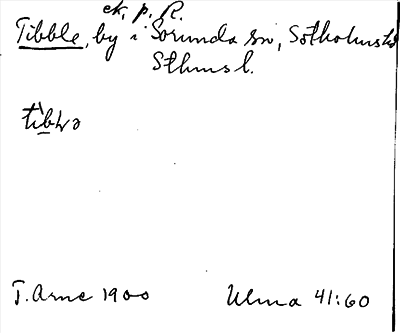 ek, p. R.
Tibble, by i Sorunda sn, Sotholms hd
Sthms l.
T. Arne 1900 Ulma 41:60